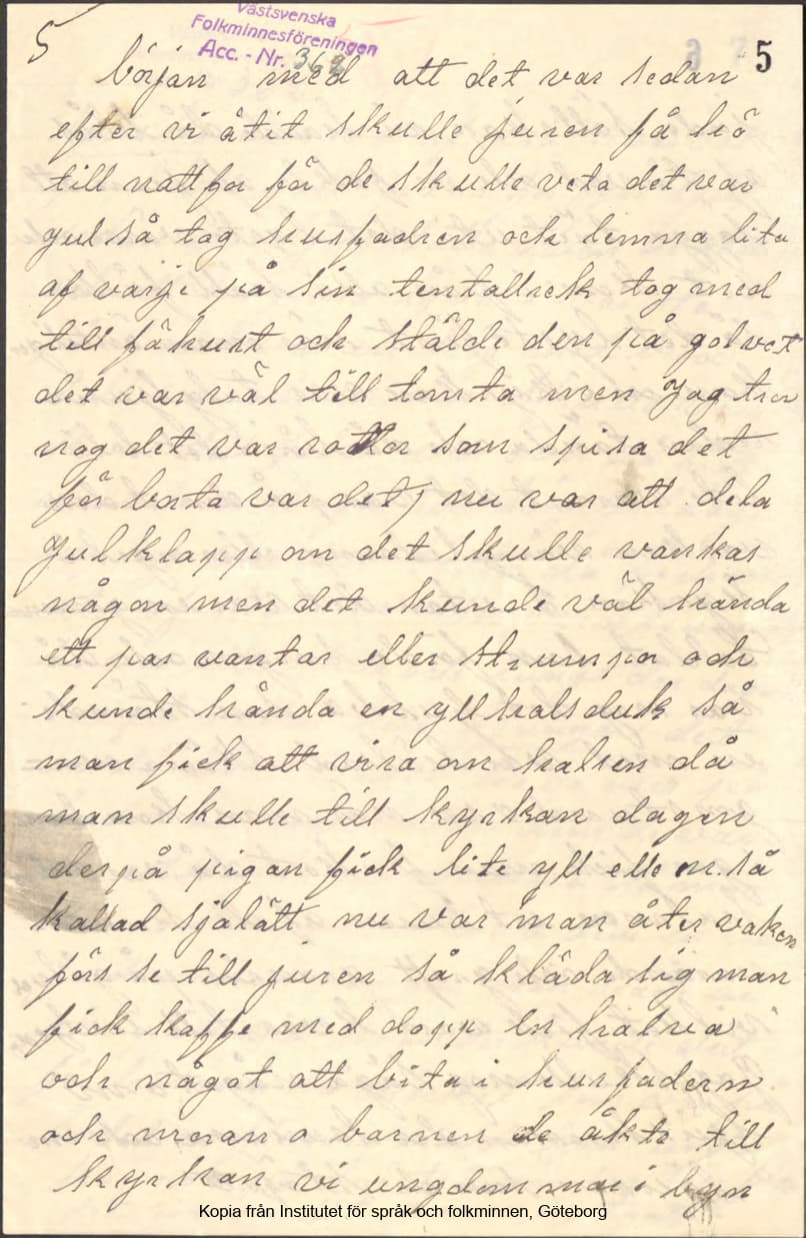 5
Västsvenska
Folkminnesföreningen
Acc. - Nr. 368
5
början med att det var sedan
efter vi ätit skulle juren få hö
till nattfor för de skulle veta det var
jul så tog husfadren och lemna lita
af varje på sin tentallrek tog med
till fähust och stälde den på golvet
det var väl till tomta men jag tror
nog det var rottor som spisa det
för borta var det) nu var att dela
Julklapp om det skulle vankas
någon men det kunde väl hända
ett par vantar eller strumpor och
kunde hända en yllhalsduk så
man fick att vira om halsen då
man skulle till kyrkan dagen
derpå pigan fick lite yll elle nr. så
kallad sjalätt nu var man åter vaken
förs se till juren så kläda sig man
fick kaffe med dopp en halva
och något att bita i husfadern
och moran o barnen de åkte till
kyrkan vi ungdommar i byn
Kopia från Institutet för språk och folkminnen, Göteborg